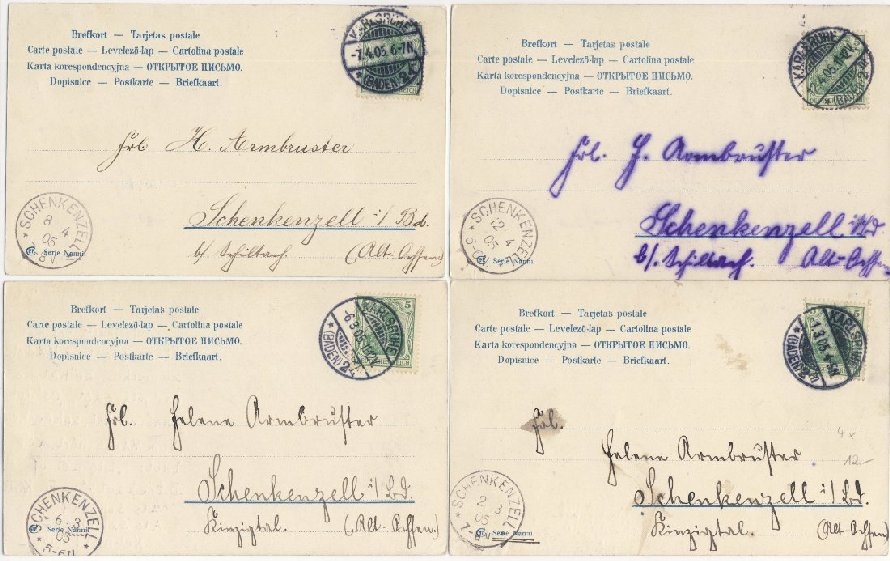 Brefkort — Tarjetas postale
Carte postale — Levelező-lap — Cartolina postale
Karta korespondencyjna — ОТКРЫТОЕ ПИСЬМО.
Dopisnice — Postkarte — Briefkaart.
KARLSRUHE
-7.4.05.6-7N.
*(BADEN)2.
Frl H. Armbruster
Schenkenzell i/ Bd.
b/ Schiltach. (Alt-
SCHENKENZELL
8
4
05
Serie Nornu
Brefkort — Tarjetas postale
Carte postale — Levelező-lap — Cartolina postale
Karta korespondencyjna — ОТКРЫТОЕ ПИСЬМО.
Dopisnice — Postkarte — Briefkaart.
KARLSRUHE
Frl. H. Armbruster
Schenkenzell i/
b/. Schiltach. Alt-
SCHENKENZELL
4
05
Brefkort — Tarjetas postale
Carte postale — Levelező-lap — Cartolina postale
Karta korespondencyjna — ОТКРЫТОЕ ПИСЬМО.
Dopisnice — Postkarte — Briefkaart.
KARLSRUHE
*(BADEN)2.
5
Frl. Helene Armbruster
Schenkenzell i/ Bd.
Kinzigtal. (Alt-
SCHENKENZELL
6. 3
05
Brefkort — Tarjetas postale
Carte postale — Levelező-lap — Cartolina postale
Karta korespondencyjna — ОТКРЫТОЕ ПИСЬМО.
Dopisnice — Postkarte — Briefkaart.
KARLSRUHE
(BADEN)
Frl.
4 x
Helene Armbruster
12.-
Schenkenzell i/ Bd.
Kinzigtal. (Alt-
SCHENKENZELL
2
3
05